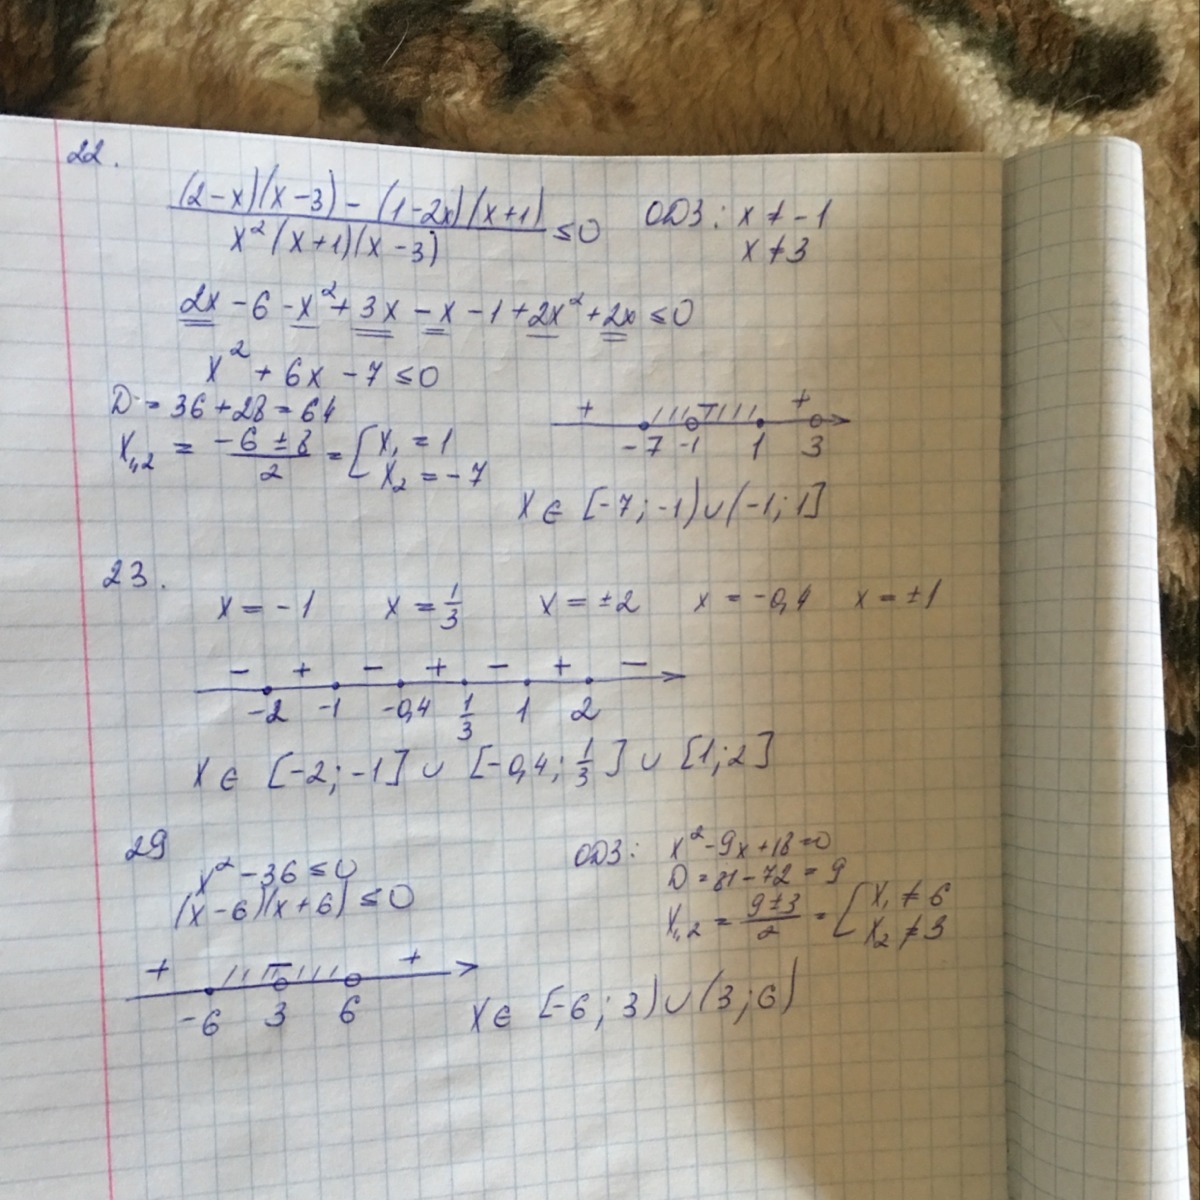 22.
(2-x)(x-3) - (1-2x)(x+1)
x²(x+1)(x-3) ≤0
ОДЗ: x ≠ -1
x ≠ 3
2x - 6 - x² + 3x - x - 1 + 2x² + 2x ≤ 0
x² + 6x - 7 ≤ 0
D = 36 + 28 = 64
x₁,₂ = (-6 ± 8)/2 = [x₁ = 1
x₂ = -7
+ - +
-7 -1 1 3
x ∈ [-7; -1) ∪ (-1; 1]
23.
x = -1 x = 1/3 x = ±2 x = -0,4 x = ±1
- + - + - + -
-2 -1 -0,4 1/3 1 2
x ∈ [-2; -1] ∪ [-0,4; 1/3] ∪ [1; 2]
29
x² - 36 ≤ 0
(x-6)(x+6) ≤ 0
ОДЗ: x² - 9x + 18 = 0
D = 81 - 72 = 9
x₁,₂ = (9 ± 3)/2 = [x₁ ≠ 6
x₂ ≠ 3
+ - +
-6 3 6
x ∈ [-6; 3) ∪ (3; 6)